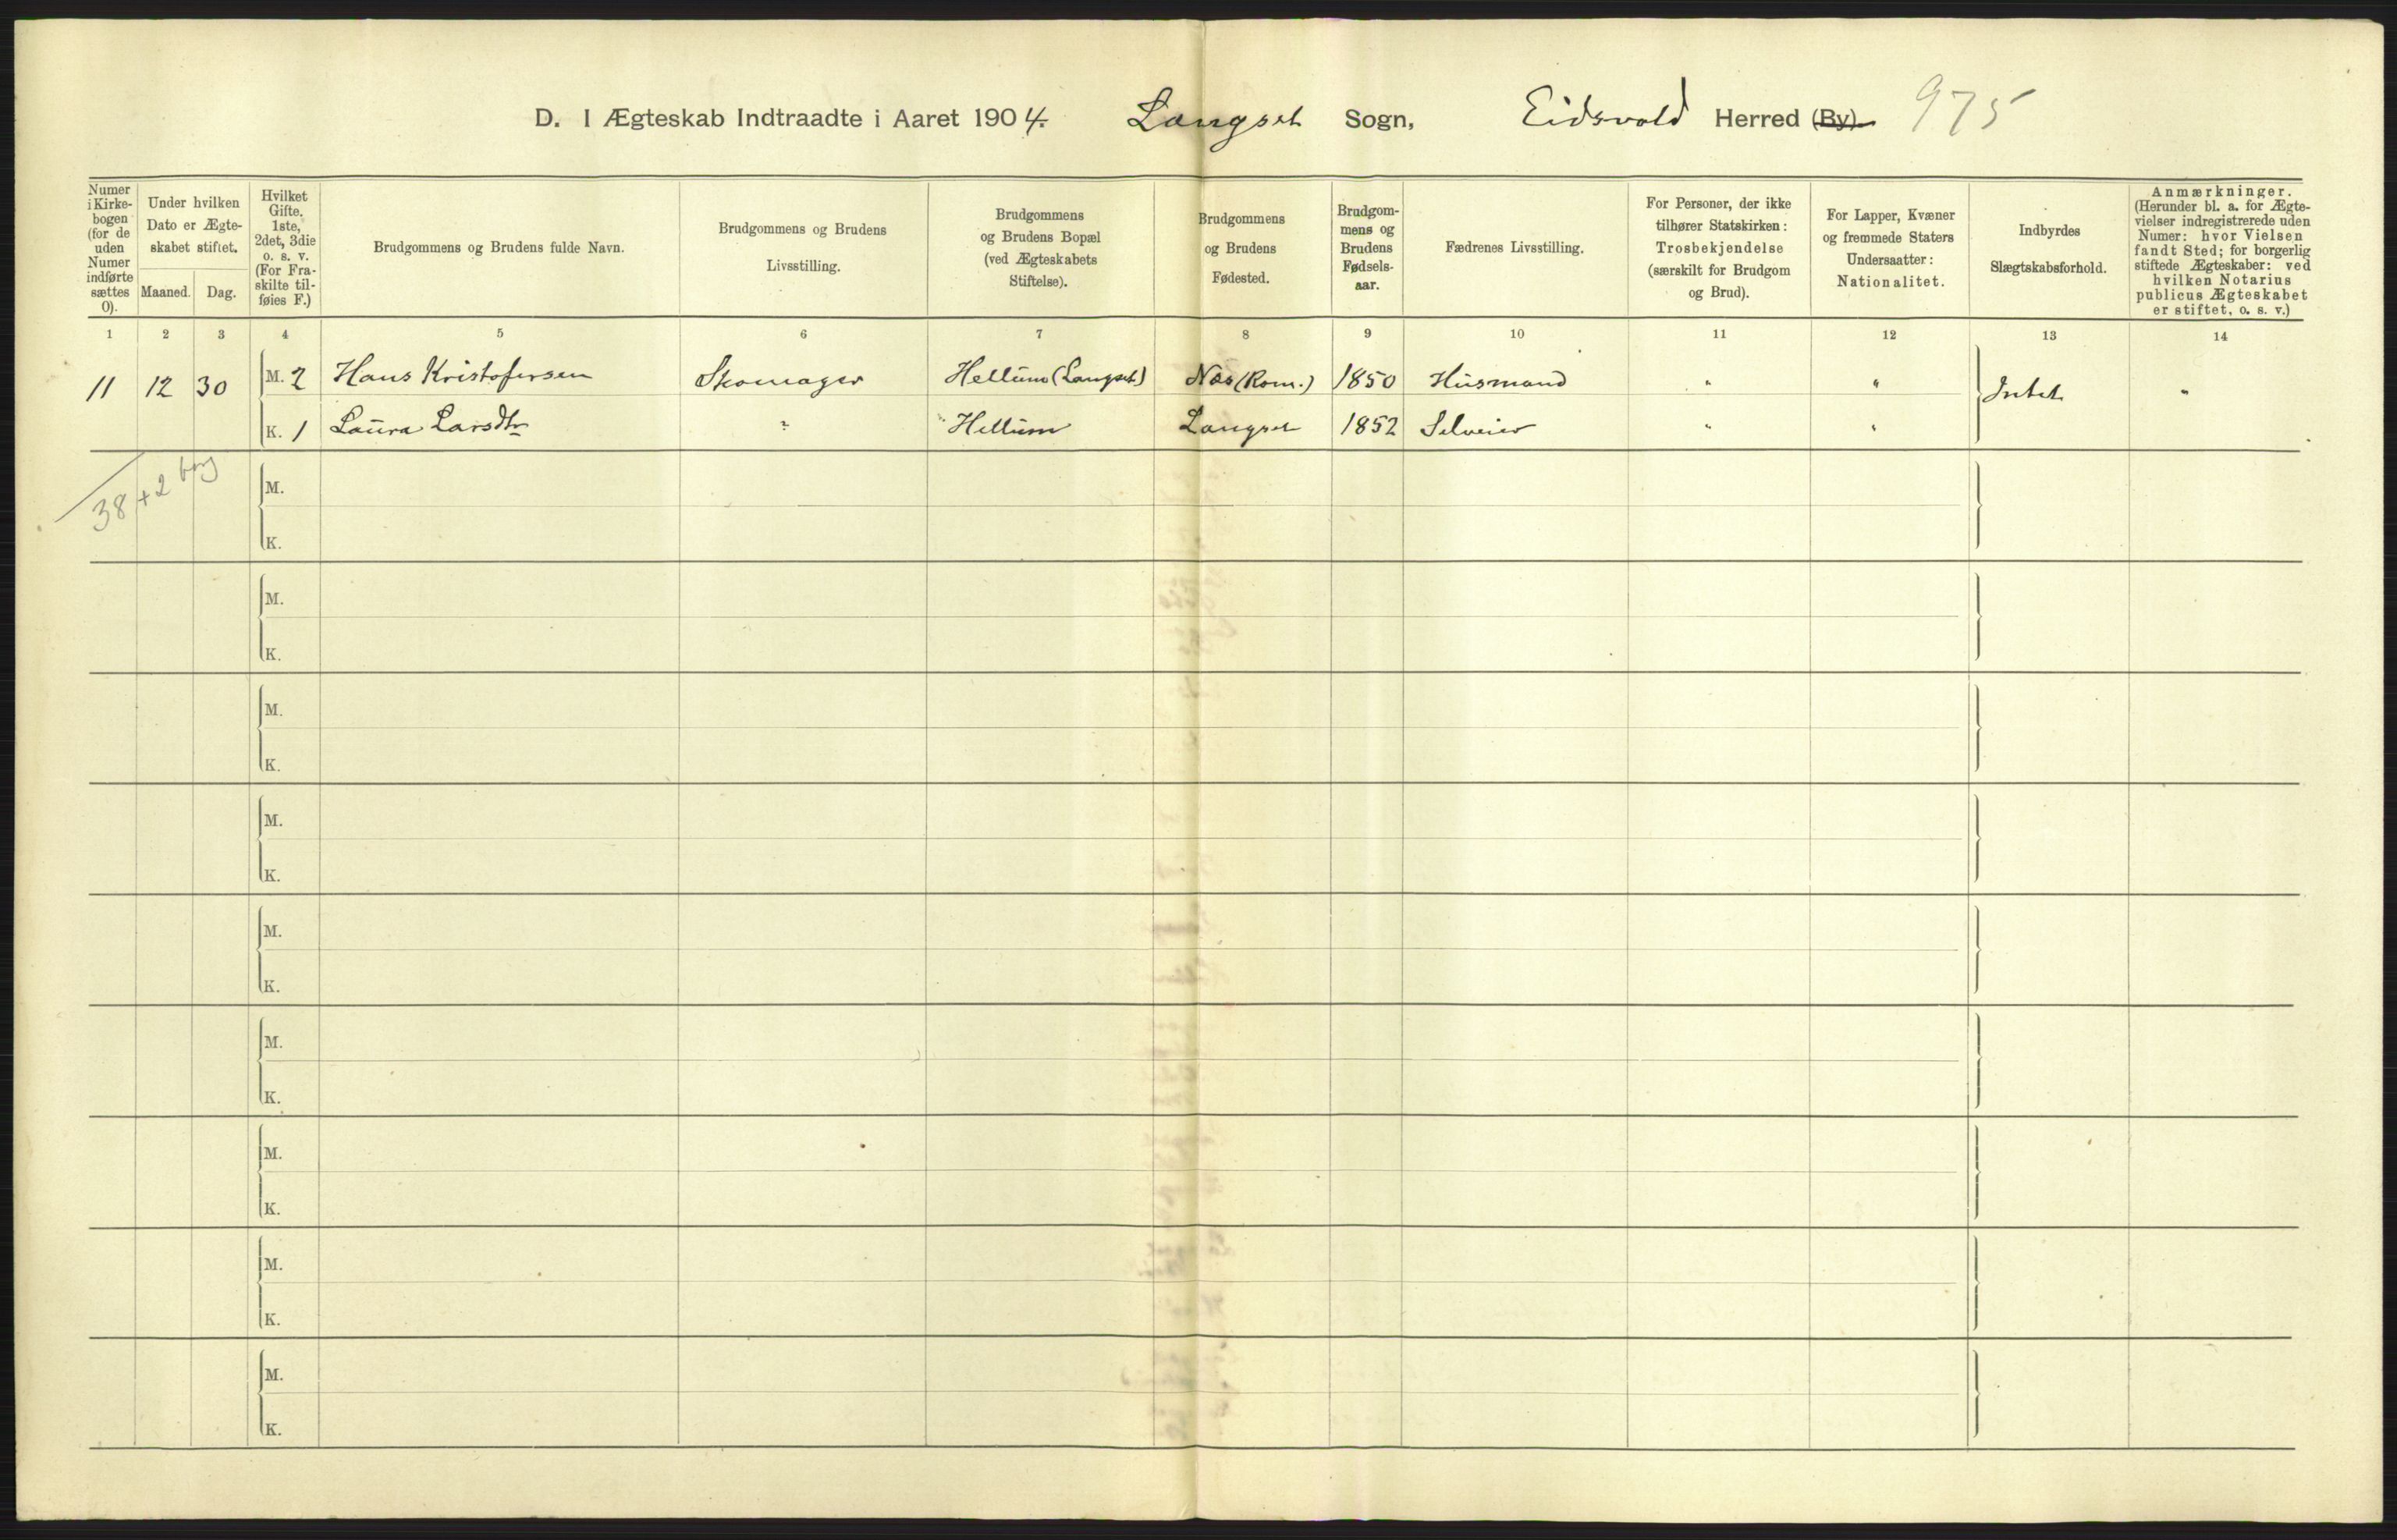 D. I Ægteskab Indtraadte i Aaret 1904. Langset Sogn, Eidsvold Herred (By) 975
Numer i Kirke-bogen (for de uden Numer indførte sættes 0).
Under hvilken Dato er Ægte-skabet stiftet.
Maaned. Dag.
Hvilket Gifte. 1ste, 2det, 3die o. s. v. (For Fra-skilte til-føies F.)
Brudgommens og Brudens fulde Navn.
Brudgommens og Brudens Livsstilling.
Brudgommens og Brudens Bopæl (ved Ægteskabets Stiftelse).
Brudgommens og Brudens Fødested.
Brudgom-mens og Brudens Fødsels-aar.
Fædrenes Livsstilling.
For Personer, der ikke tilhører Statskirken: Trosbekjendelse (særskilt for Brudgom og Brud).
For Lapper, Kvæner og fremmede Staters Undersaatter: Nationalitet.
Indbyrdes Slægtskabsforhold.
Anmærkninger. (Herunder bl. a. for Ægte-vielser indregistrerede uden Numer: hvor Vielsen fandt Sted; for borgerlig stiftede Ægteskaber: ved hvilken Notarius publicus Ægteskabet er stiftet, o. s. v.)
1 2 3 4 5 6 7 8 9 10 11 12 13 14
11 12 30 M. 2 Hans Kristofersen Skomager Hellum (Langset) Næs (Rom.) 1850 Husmand " " Intet "
K. 1 Laura Larsdtr " Hellum Langset 1852 Selveier " "
38 + 2 borg
M.
K.
M.
K.
M.
K.
M.
K.
M.
K.
M.
K.
M.
K.
M.
K.
M.
K.